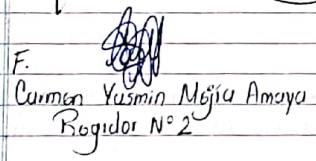 F.
Carmen Yasmin Mejía Amaya
Regidor Nº 2